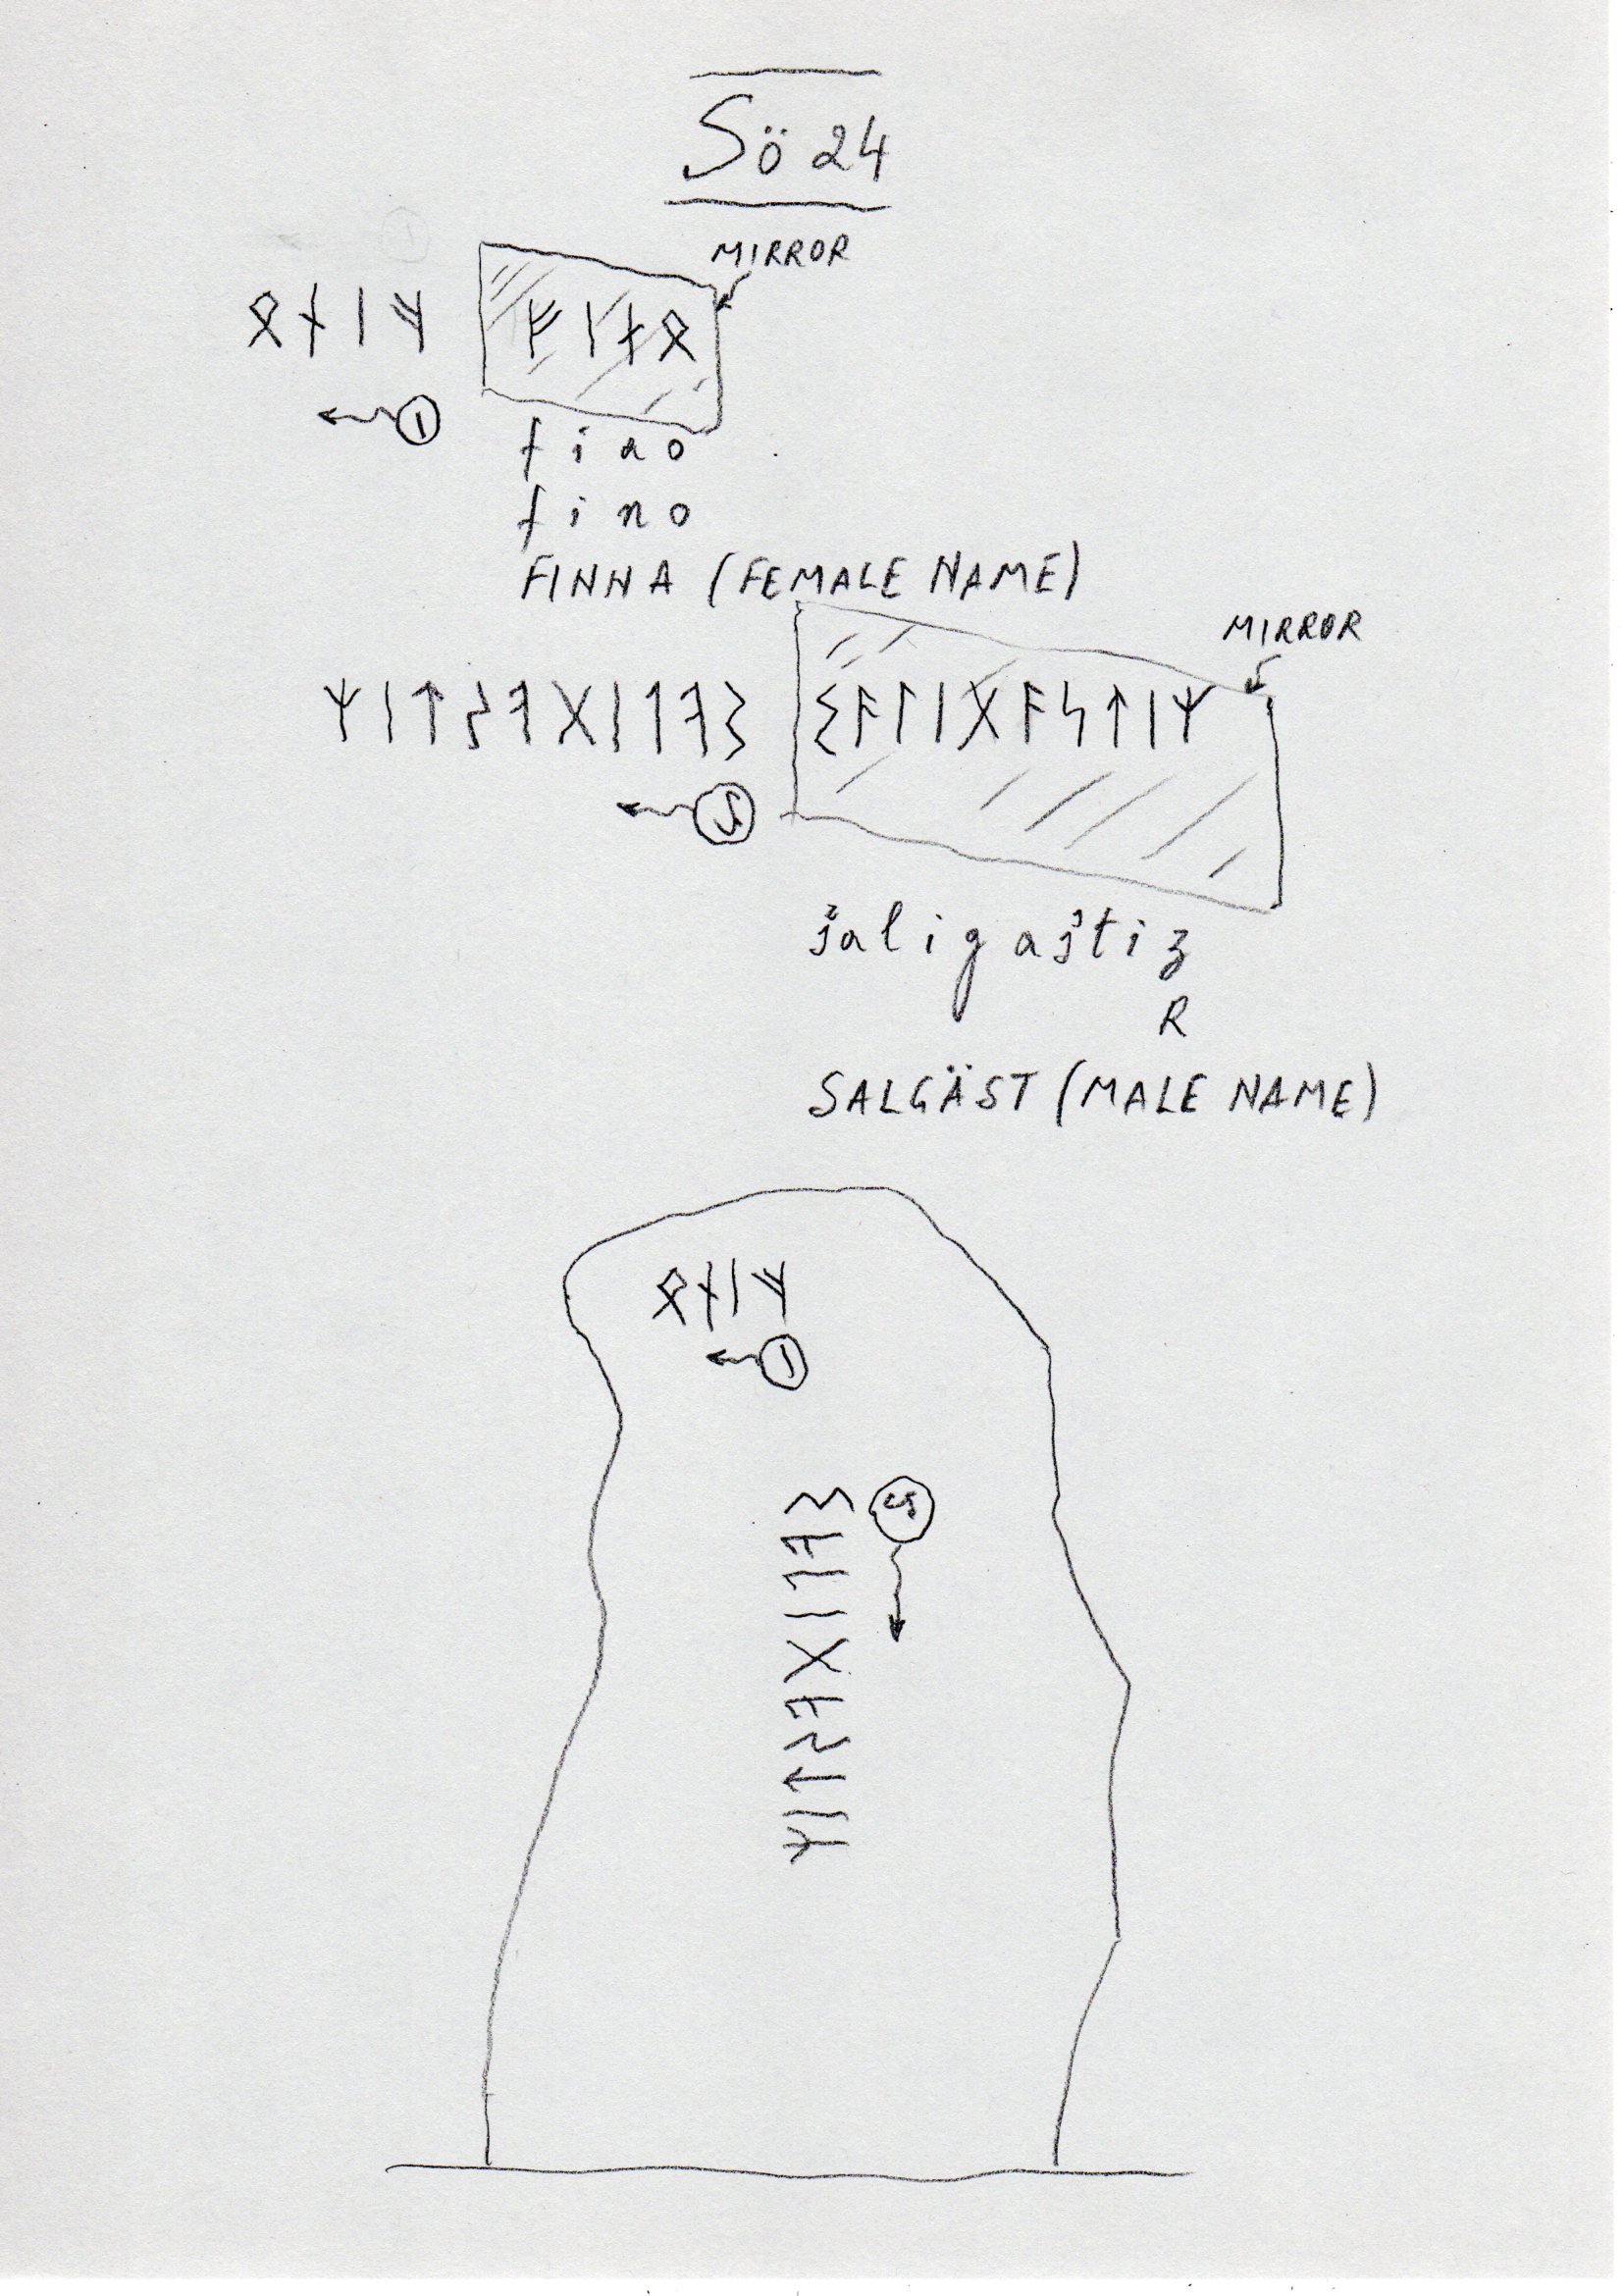 Sö 24
MIRROR
ᛟᚾᛁᚠ ᚠᛁᚾᛟ
1
f i n o
f i n o
FINNA (FEMALE NAME)
MIRROR
ᛉᛁᛏᛊᚨᚷᛁᛚᚨᛊ ᛊᚨᛚᛁᚷᚨᛊᛏᛁᛉ
S
s a l i g a s t i z
R
SALGÄST (MALE NAME)
ᛟᚾᛁᚠ
1
S
ᛊᚨᛚᛁᚷᚨᛊᛏᛁᛉ